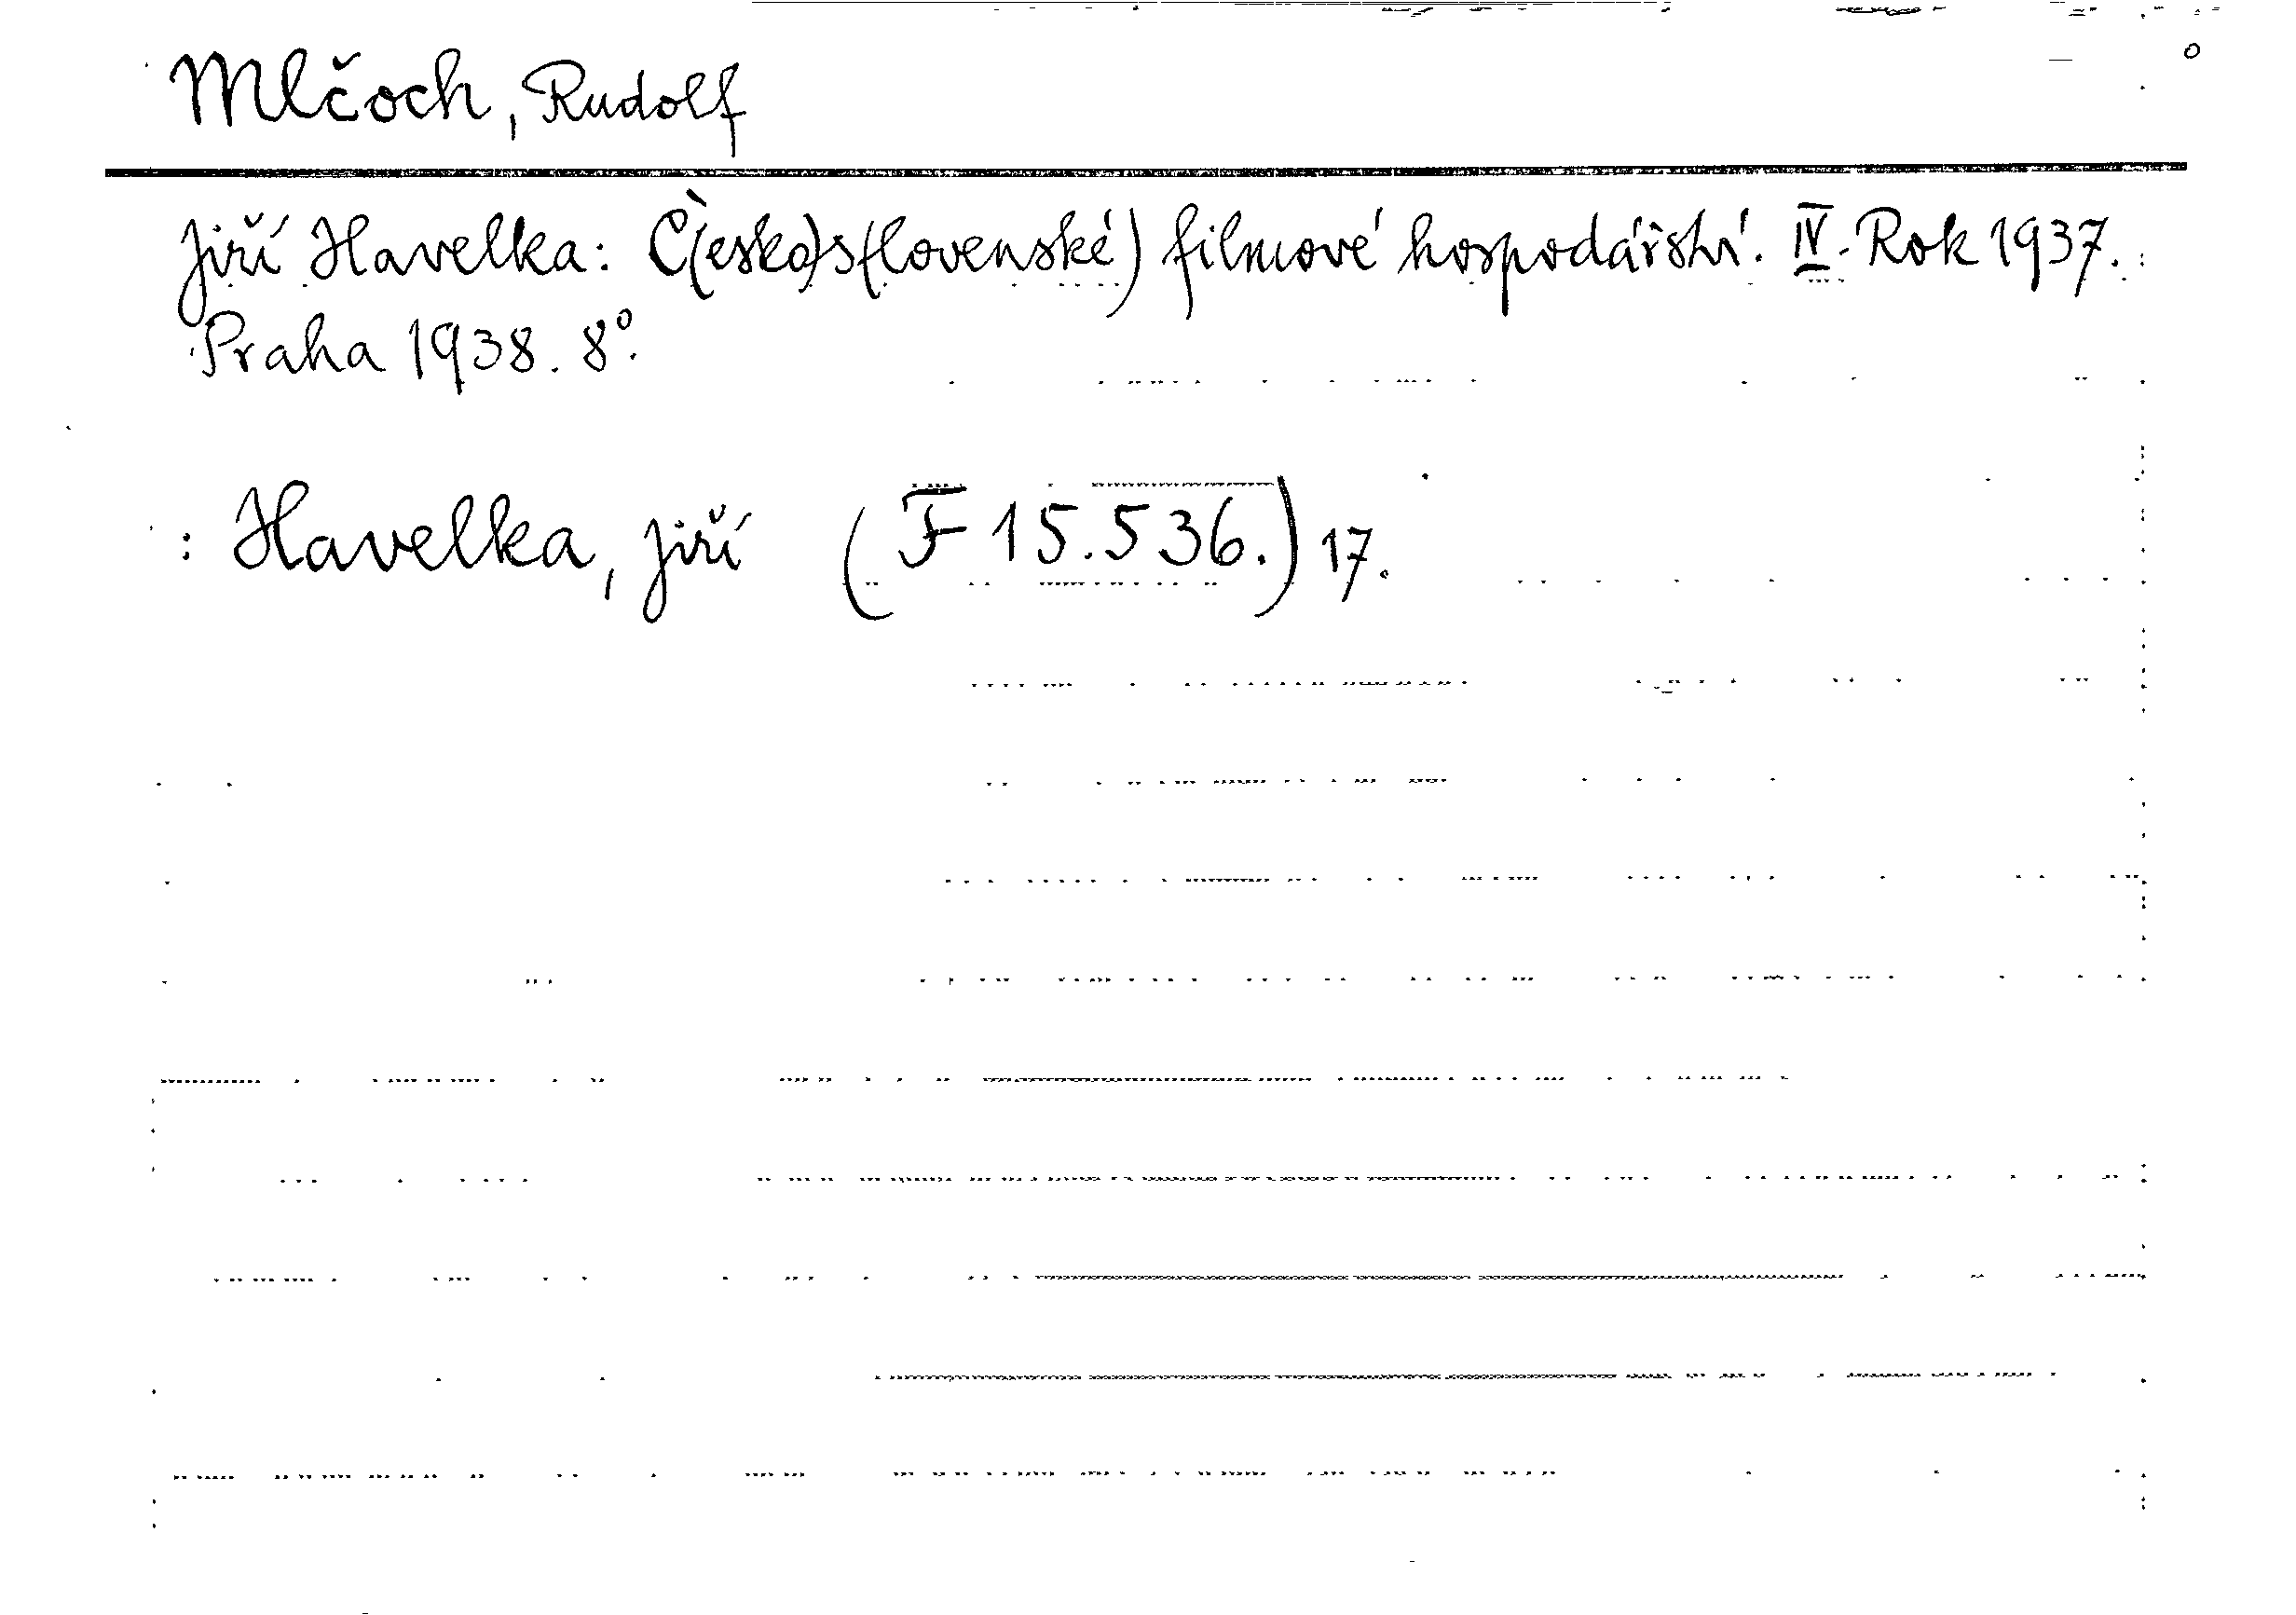 Mlčoch, Rudolf
Jiří Havelka: Č(esko)s(lovenské) filmové hospodářství. IV. Rok 1937.
Praha 1938. 8°.
: Havelka, Jiří (F 15.536.) 17.